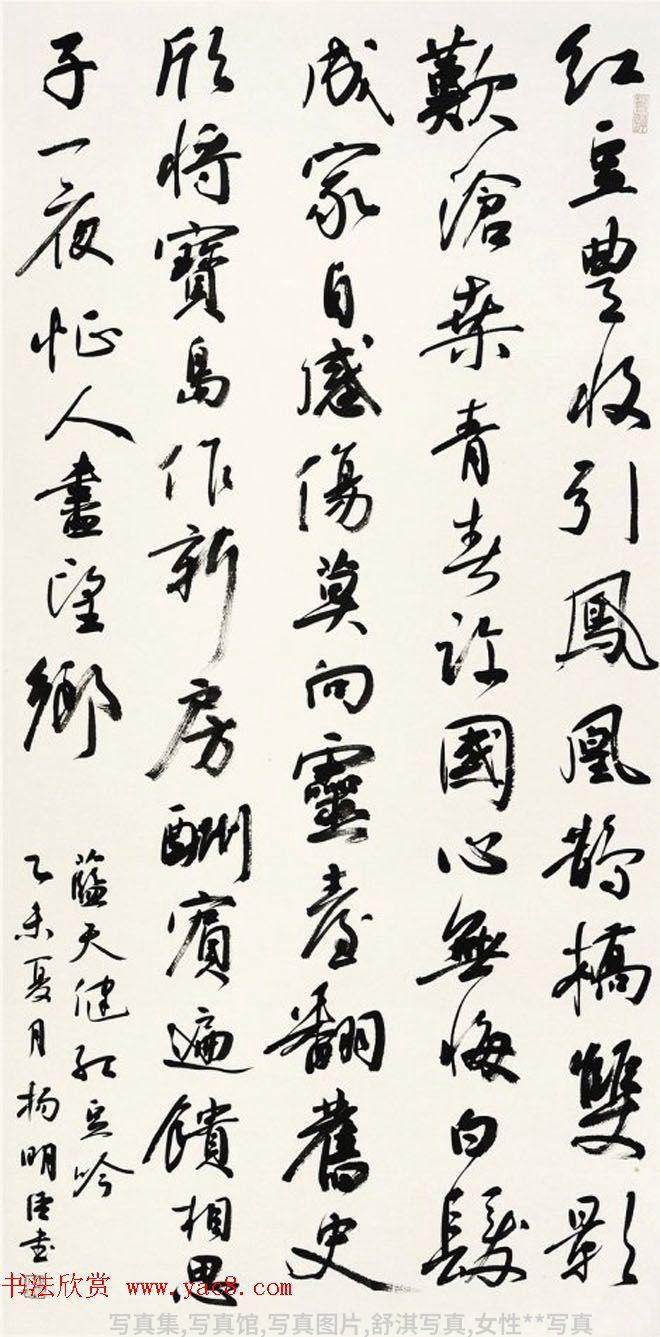 红豆豐收引鳳凰鵲橋雙影
歎滄桑青春許國心無悔白髮
成家自感傷莫向靈臺翻舊史
欣將寶島作新房酬賓遍饋相思
子一夜怔人盡望鄉
蓝天健红豆吟
乙未夏月杨明臣书
书法欣赏 www.yac8.com
写真集,写真馆,写真图片,舒淇写真,女性**写真